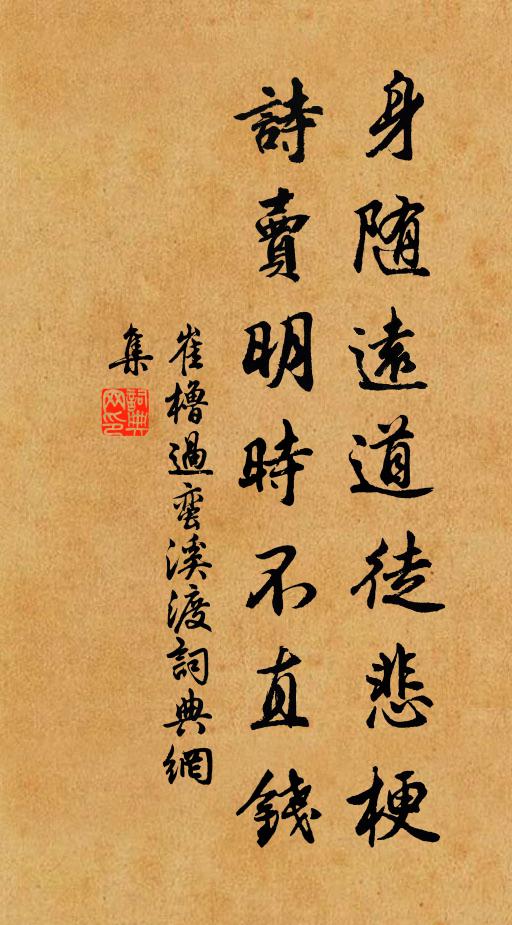 身随遠道徒悲梗
詩賣明時不直錢
崔櫓過蛮溪渡詞典網
集
詞典
网印